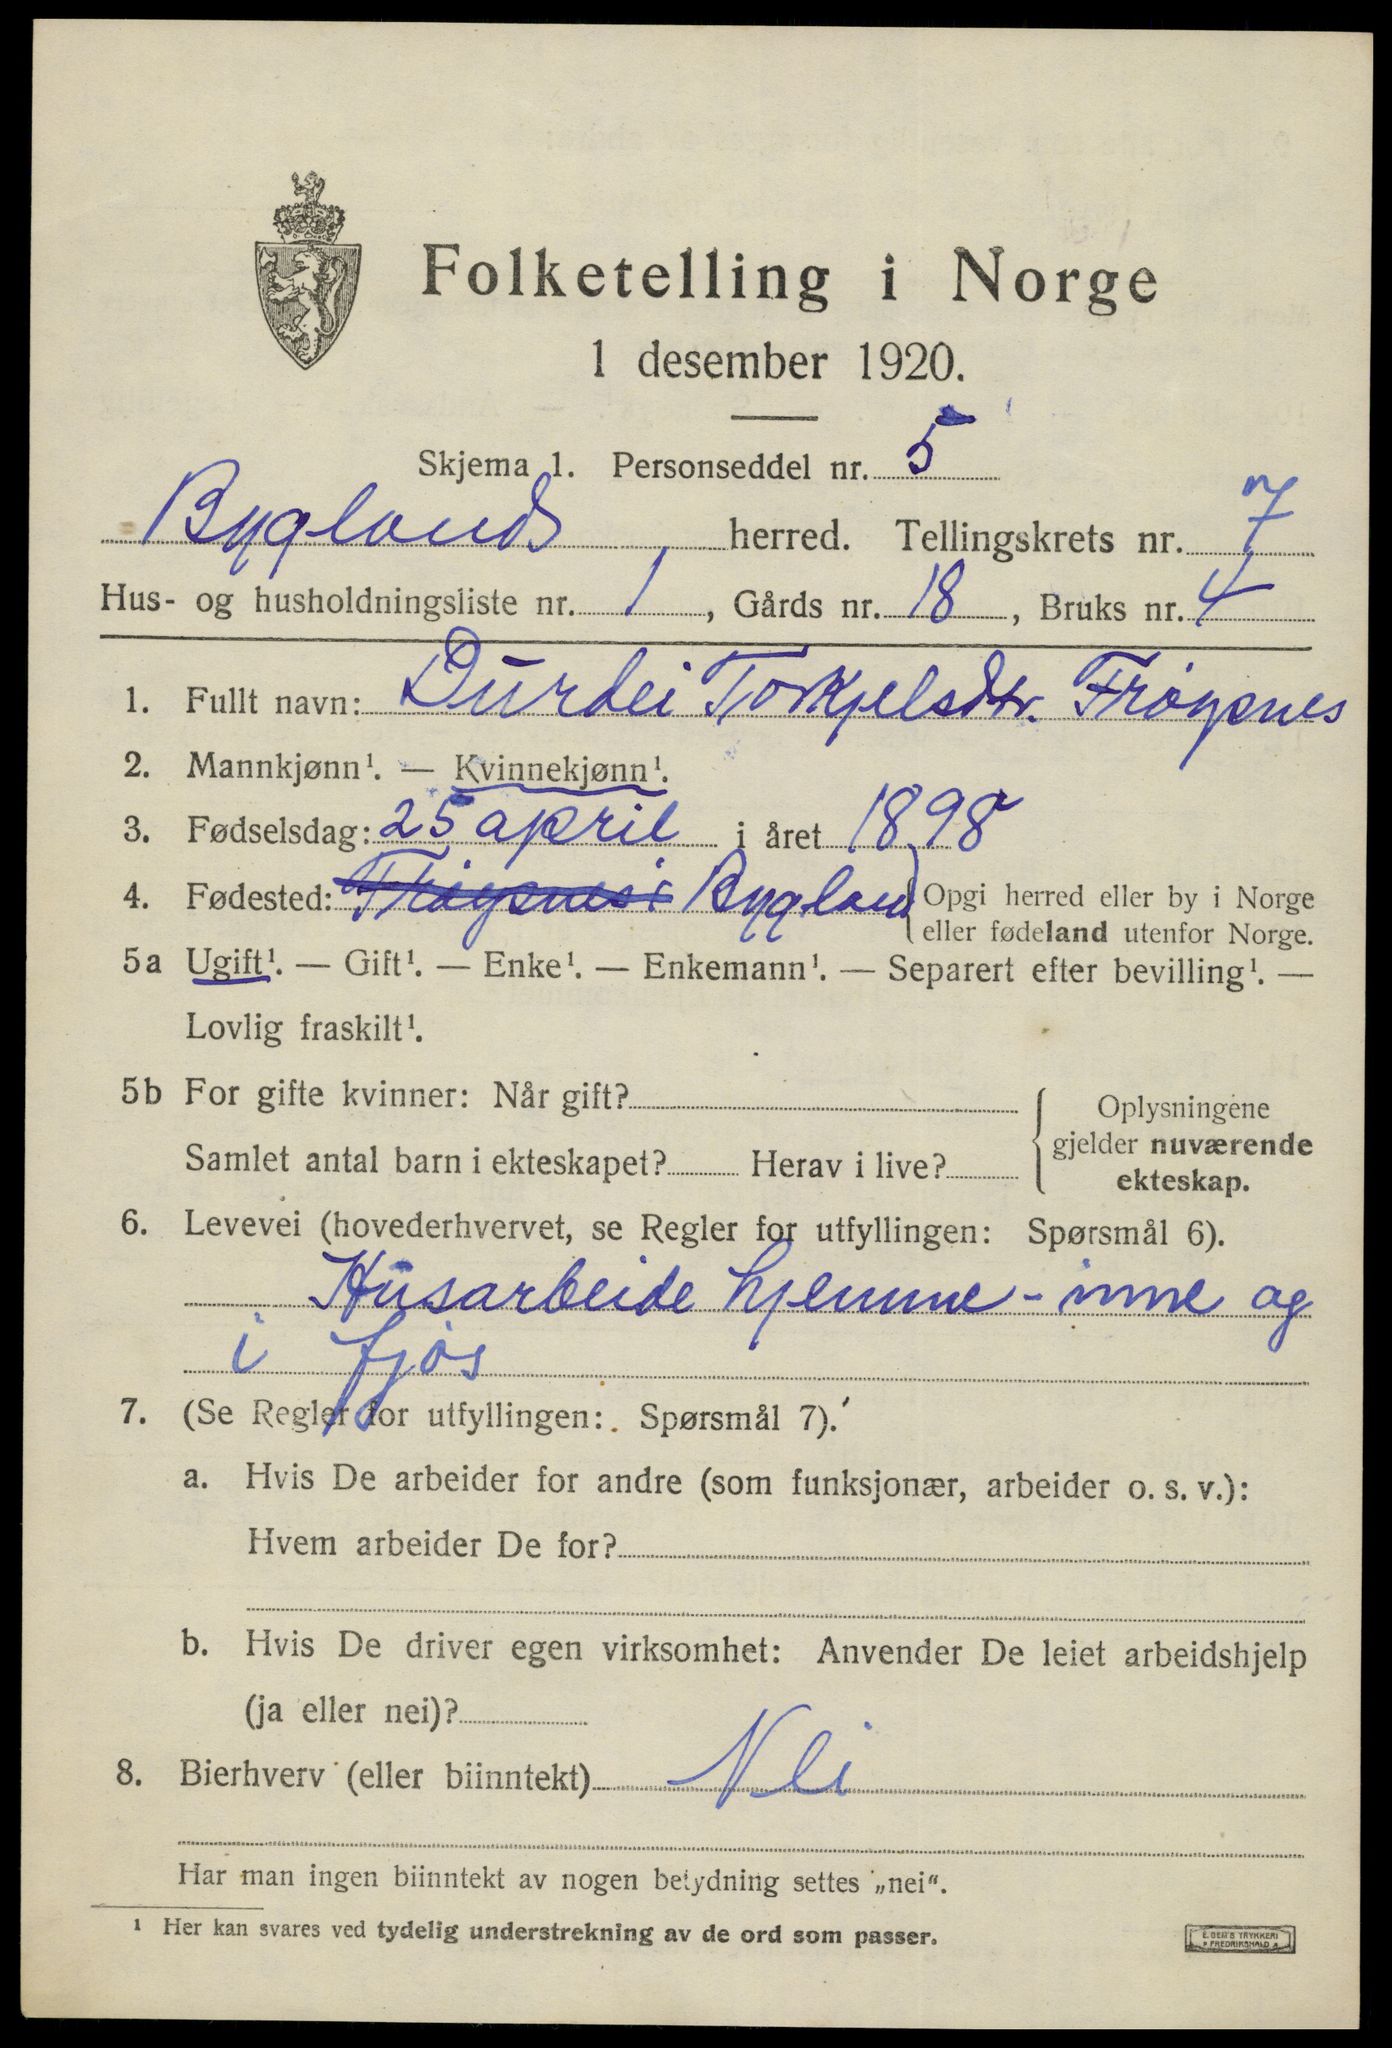 Folketelling i Norge
1 desember 1920.
Skjema 1. Personseddel nr. 5
Byglands herred. Tellingskrets nr. 7
Hus- og husholdningsliste nr. 1, Gårds nr. 18, Bruks nr. 4
1. Fullt navn: Durdei Torkjelsdtr. Frøysnes
2. Mannkjønn¹. — Kvinnekjønn¹.
3. Fødselsdag: 25 april i året 1898
4. Fødested: Frøysnes i Bygland Opgi herred eller by i Norge
eller fødeland utenfor Norge.
5a Ugift¹. — Gift¹. — Enke¹. — Enkemann¹. — Separert efter bevilling¹. —
Lovlig fraskilt¹.
5b For gifte kvinner: Når gift?
Samlet antal barn i ekteskapet? Herav i live?
Oplysningene
gjelder nuværende
ekteskap.
6. Levevei (hovederhvervet, se Regler for utfyllingen: Spørsmål 6).
Husarbeide hjemme - inne og
i fjøs
7. (Se Regler for utfyllingen: Spørsmål 7).
a. Hvis De arbeider for andre (som funksjonær, arbeider o. s. v.):
Hvem arbeider De for?
b. Hvis De driver egen virksomhet: Anvender De leiet arbeidshjelp
(ja eller nei)?
8. Bierhverv (eller biinntekt) Nei
Har man ingen biinntekt av nogen betydning settes „nei“.
¹ Her kan svares ved tydelig understrekning av de ord som passer.
E. SEM'S TRYKKERI
FREDRIKSHALD